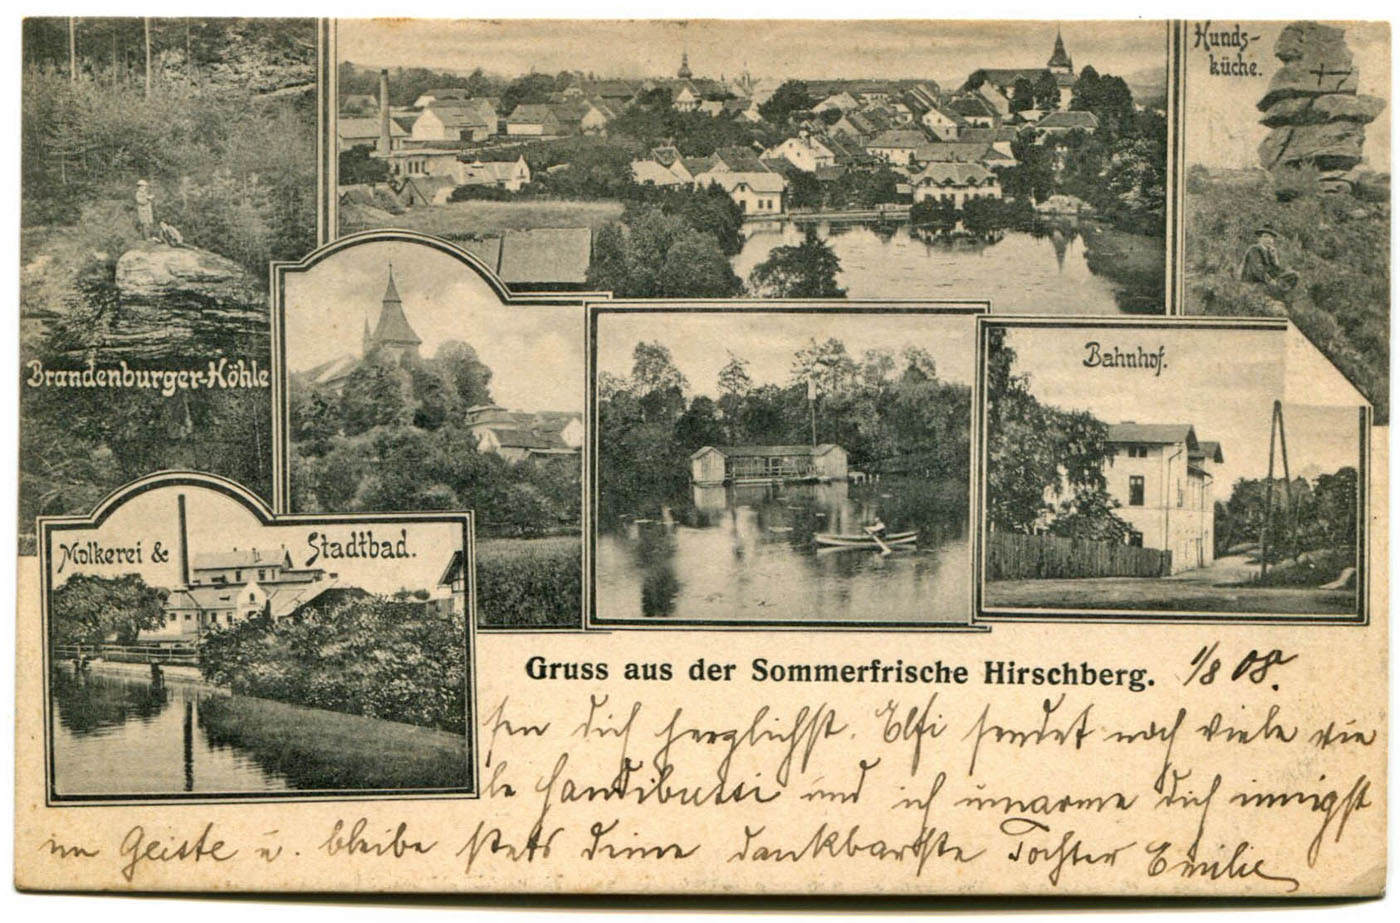 Hunds-
küche.
Brandenburger-Höhle
Bahnhof.
Molkerei & Stadtbad.
Gruss aus der Sommerfrische Hirschberg. 1/8 08.
sen dich herzlichst. Elfi sendet noch viele vie
le Handibussi und ich umarme dich innigst
im Geiste u. bleibe stets deine dankbarste Tochter Emilie